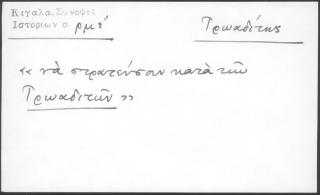 Κιγάλα, Σύνοψις
Ἱστοριῶν σ. ρμε´
Τρωαδίτης
« νὰ στρατεύσουν κατὰ τῶν
Τρωαδιτῶν »